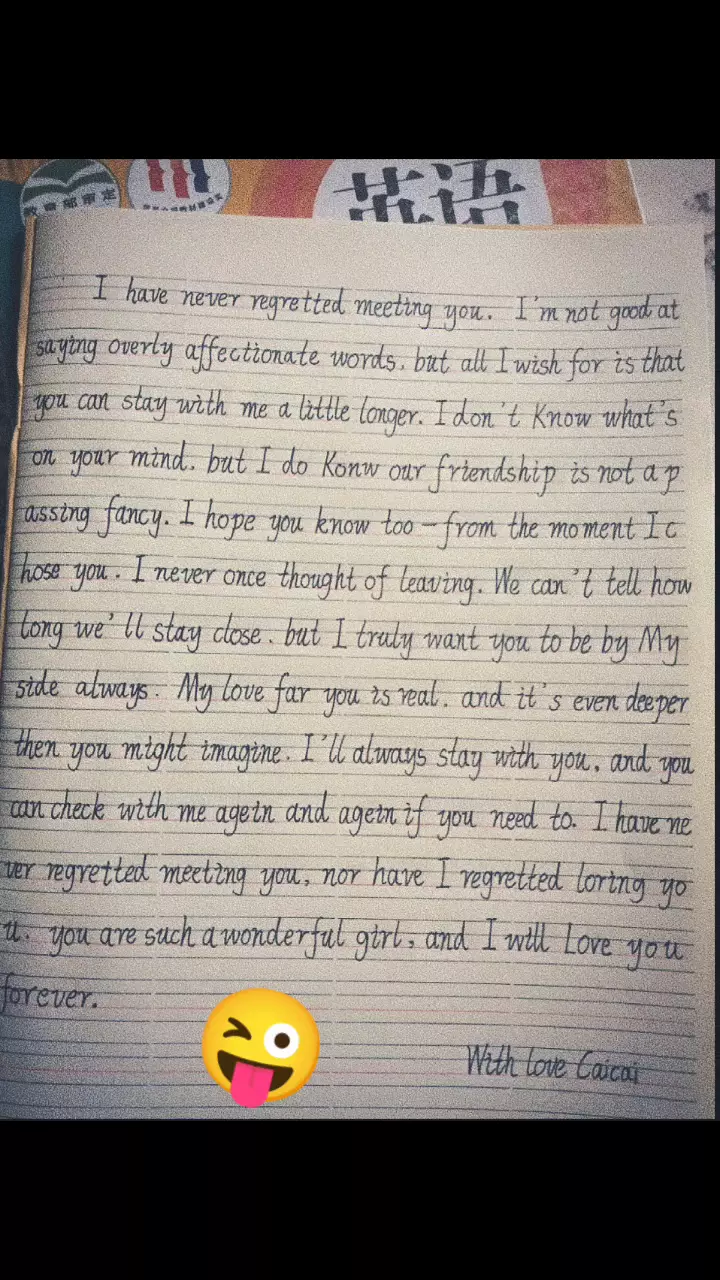 教育部审定
英语
I have never regretted meeting you. I'm not good at
saying overly affectionate words, but all I wish for is that
you can stay with me a little longer. I don't Know what's
on your mind, but I do Konw our friendship is not a p
assing fancy. I hope you know too - from the moment I c
hose you. I never once thought of leaving. We can't tell how
long we'll stay close, but I truly want you to be by My
side always. My love far you is real, and it's even deeper
then you might imagine. I'll always stay with you, and you
can check with me agein and agein if you need to. I have ne
ver regretted meeting you, nor have I regretted loring yo
u. you are such a wonderful girl, and I will Love you
forever.
With love Caicai